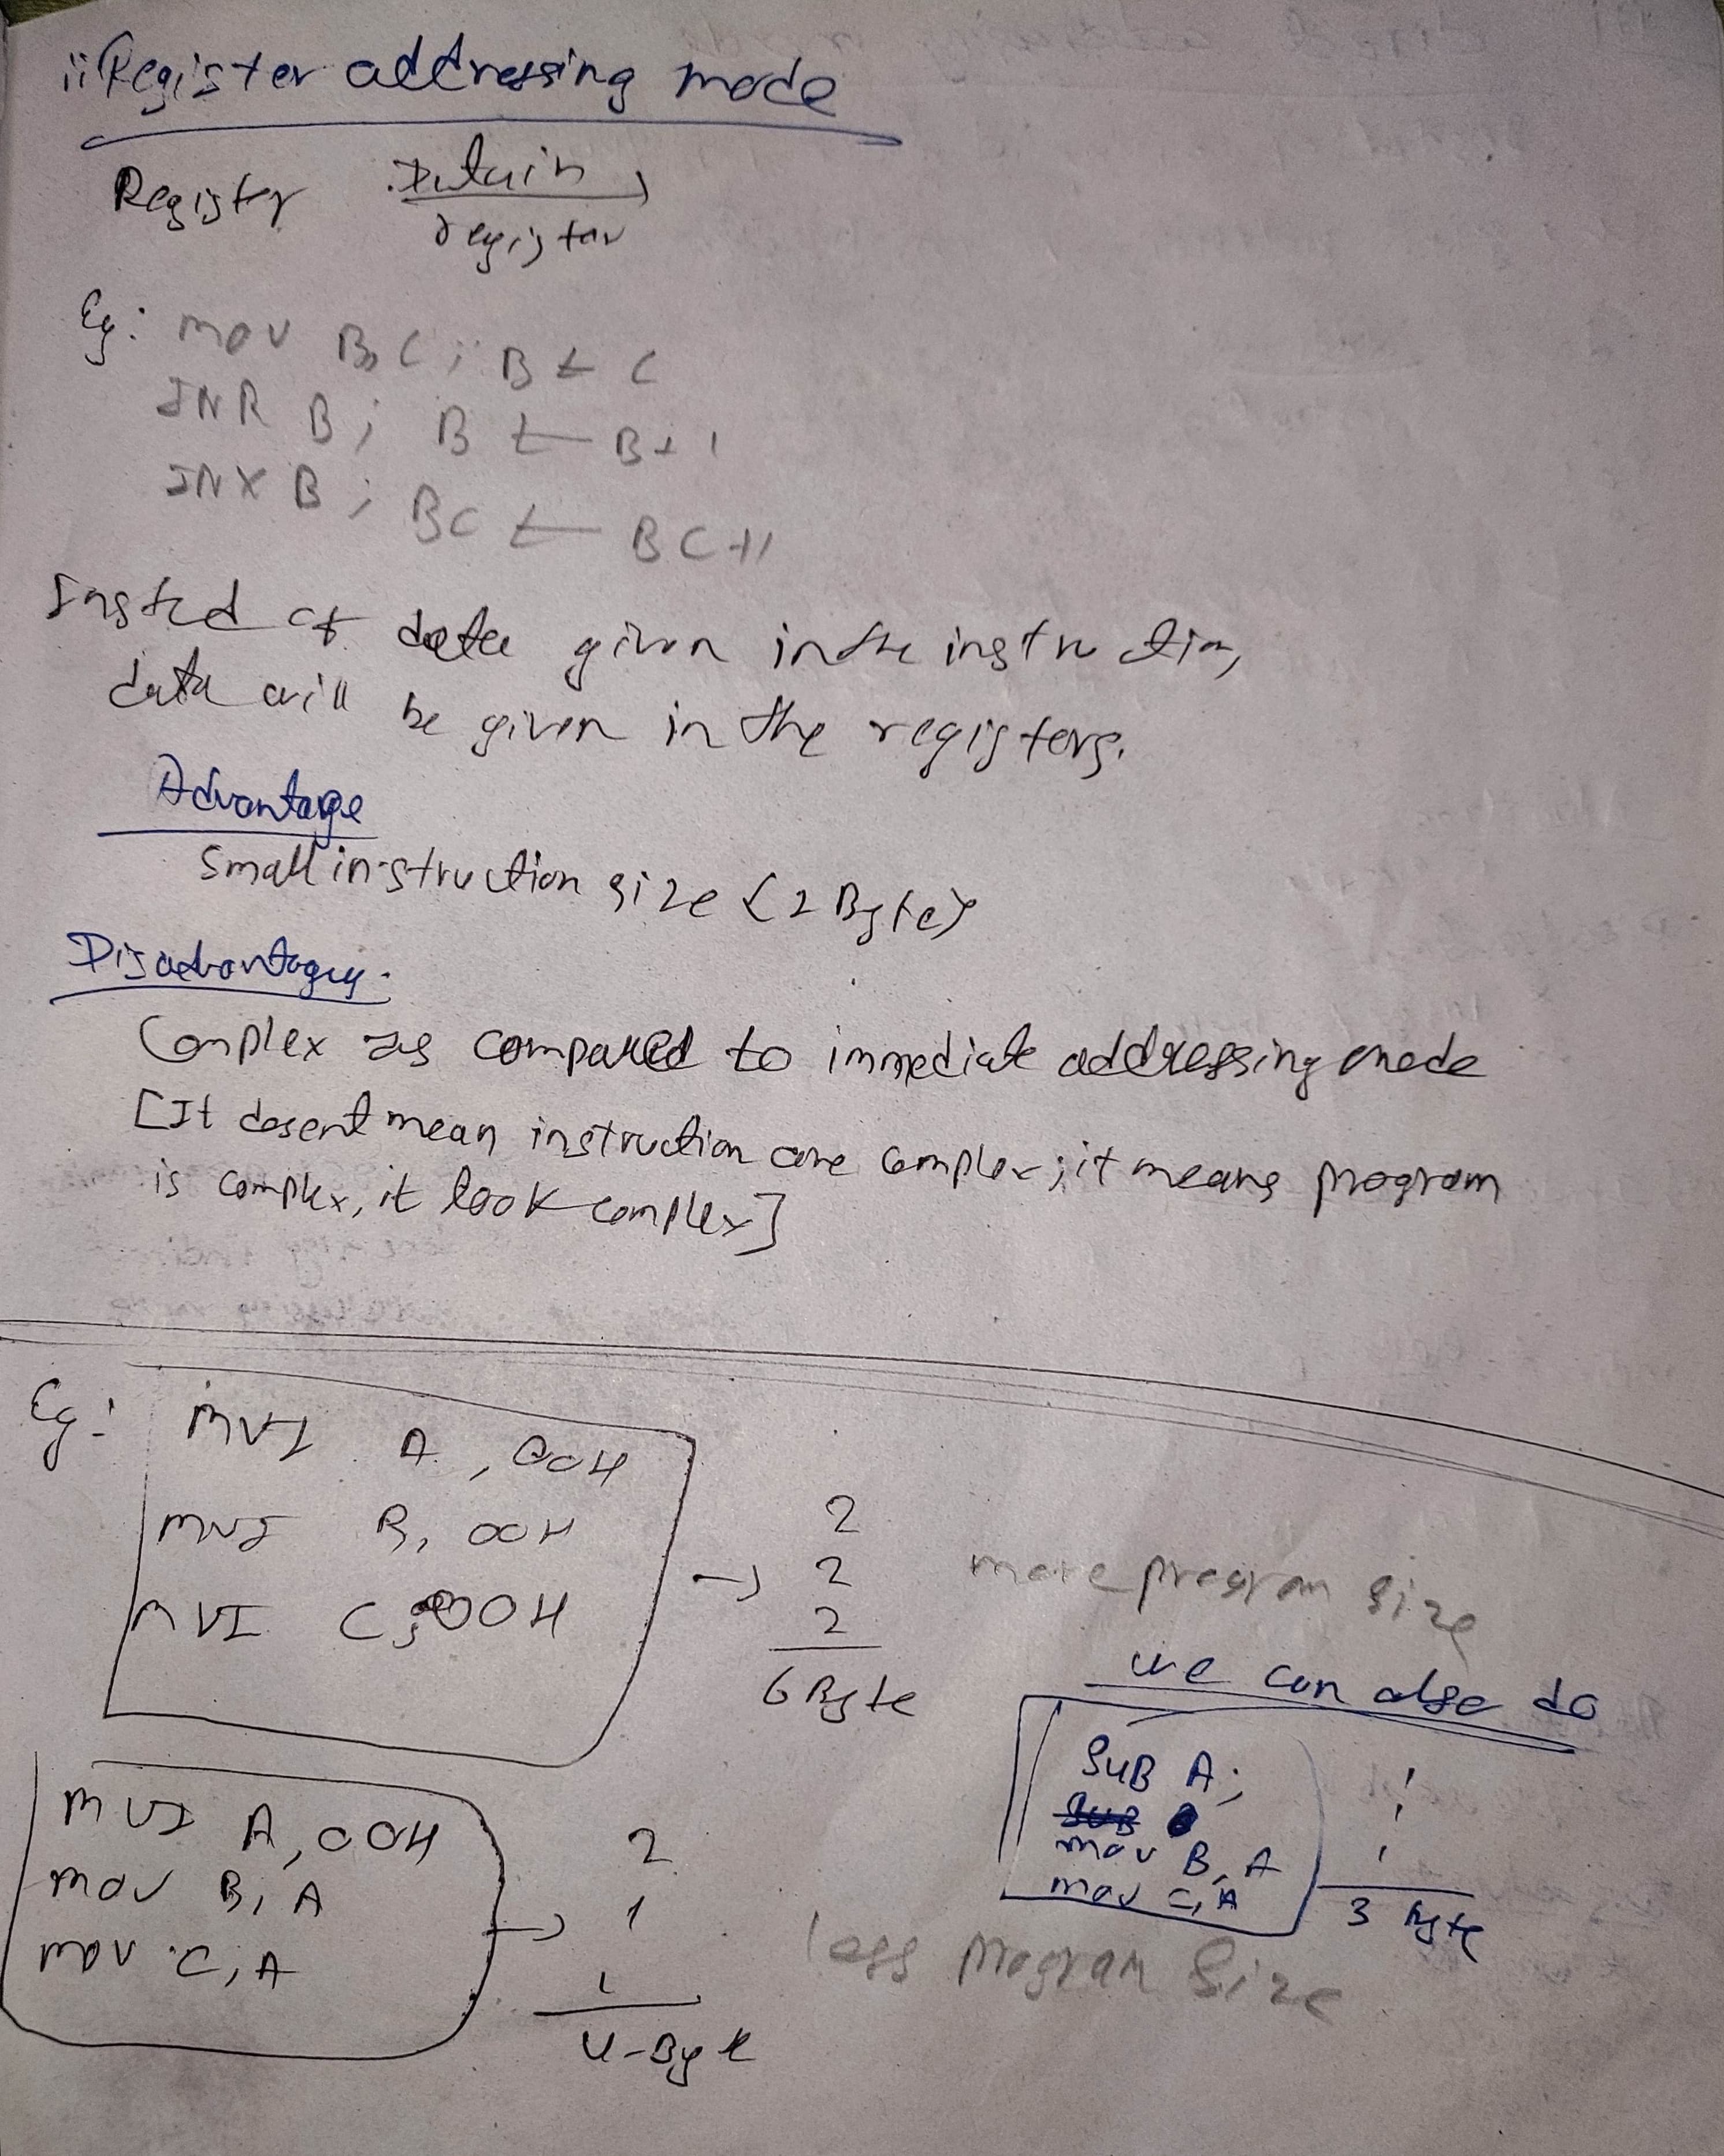 ii Register addressing mode
Register Data in
register
Eg: mov B, C ; B ← C
INR B ; B ← B+1
INX B ; BC ← BC+1
Insted of data given in the instruction,
data will be given in the registers.
Advantage
Small instruction size {1 Byte}
Disadvantages.
Complex as compared to immediate addressing mode
[It dosent mean instruction are complex; it means program
is complex, it look complex]
Eg: MVI A, 00H
MVI B, 00H 2
MVI C, 00H → 2 more program size
2
6 Byte
we can also do
SUB A; 1
mov B, A 1
mov C, A 1
3 Byte
MVI A, 00H 2
mov B, A 1
mov C, A → 1
4-Byte
less program size